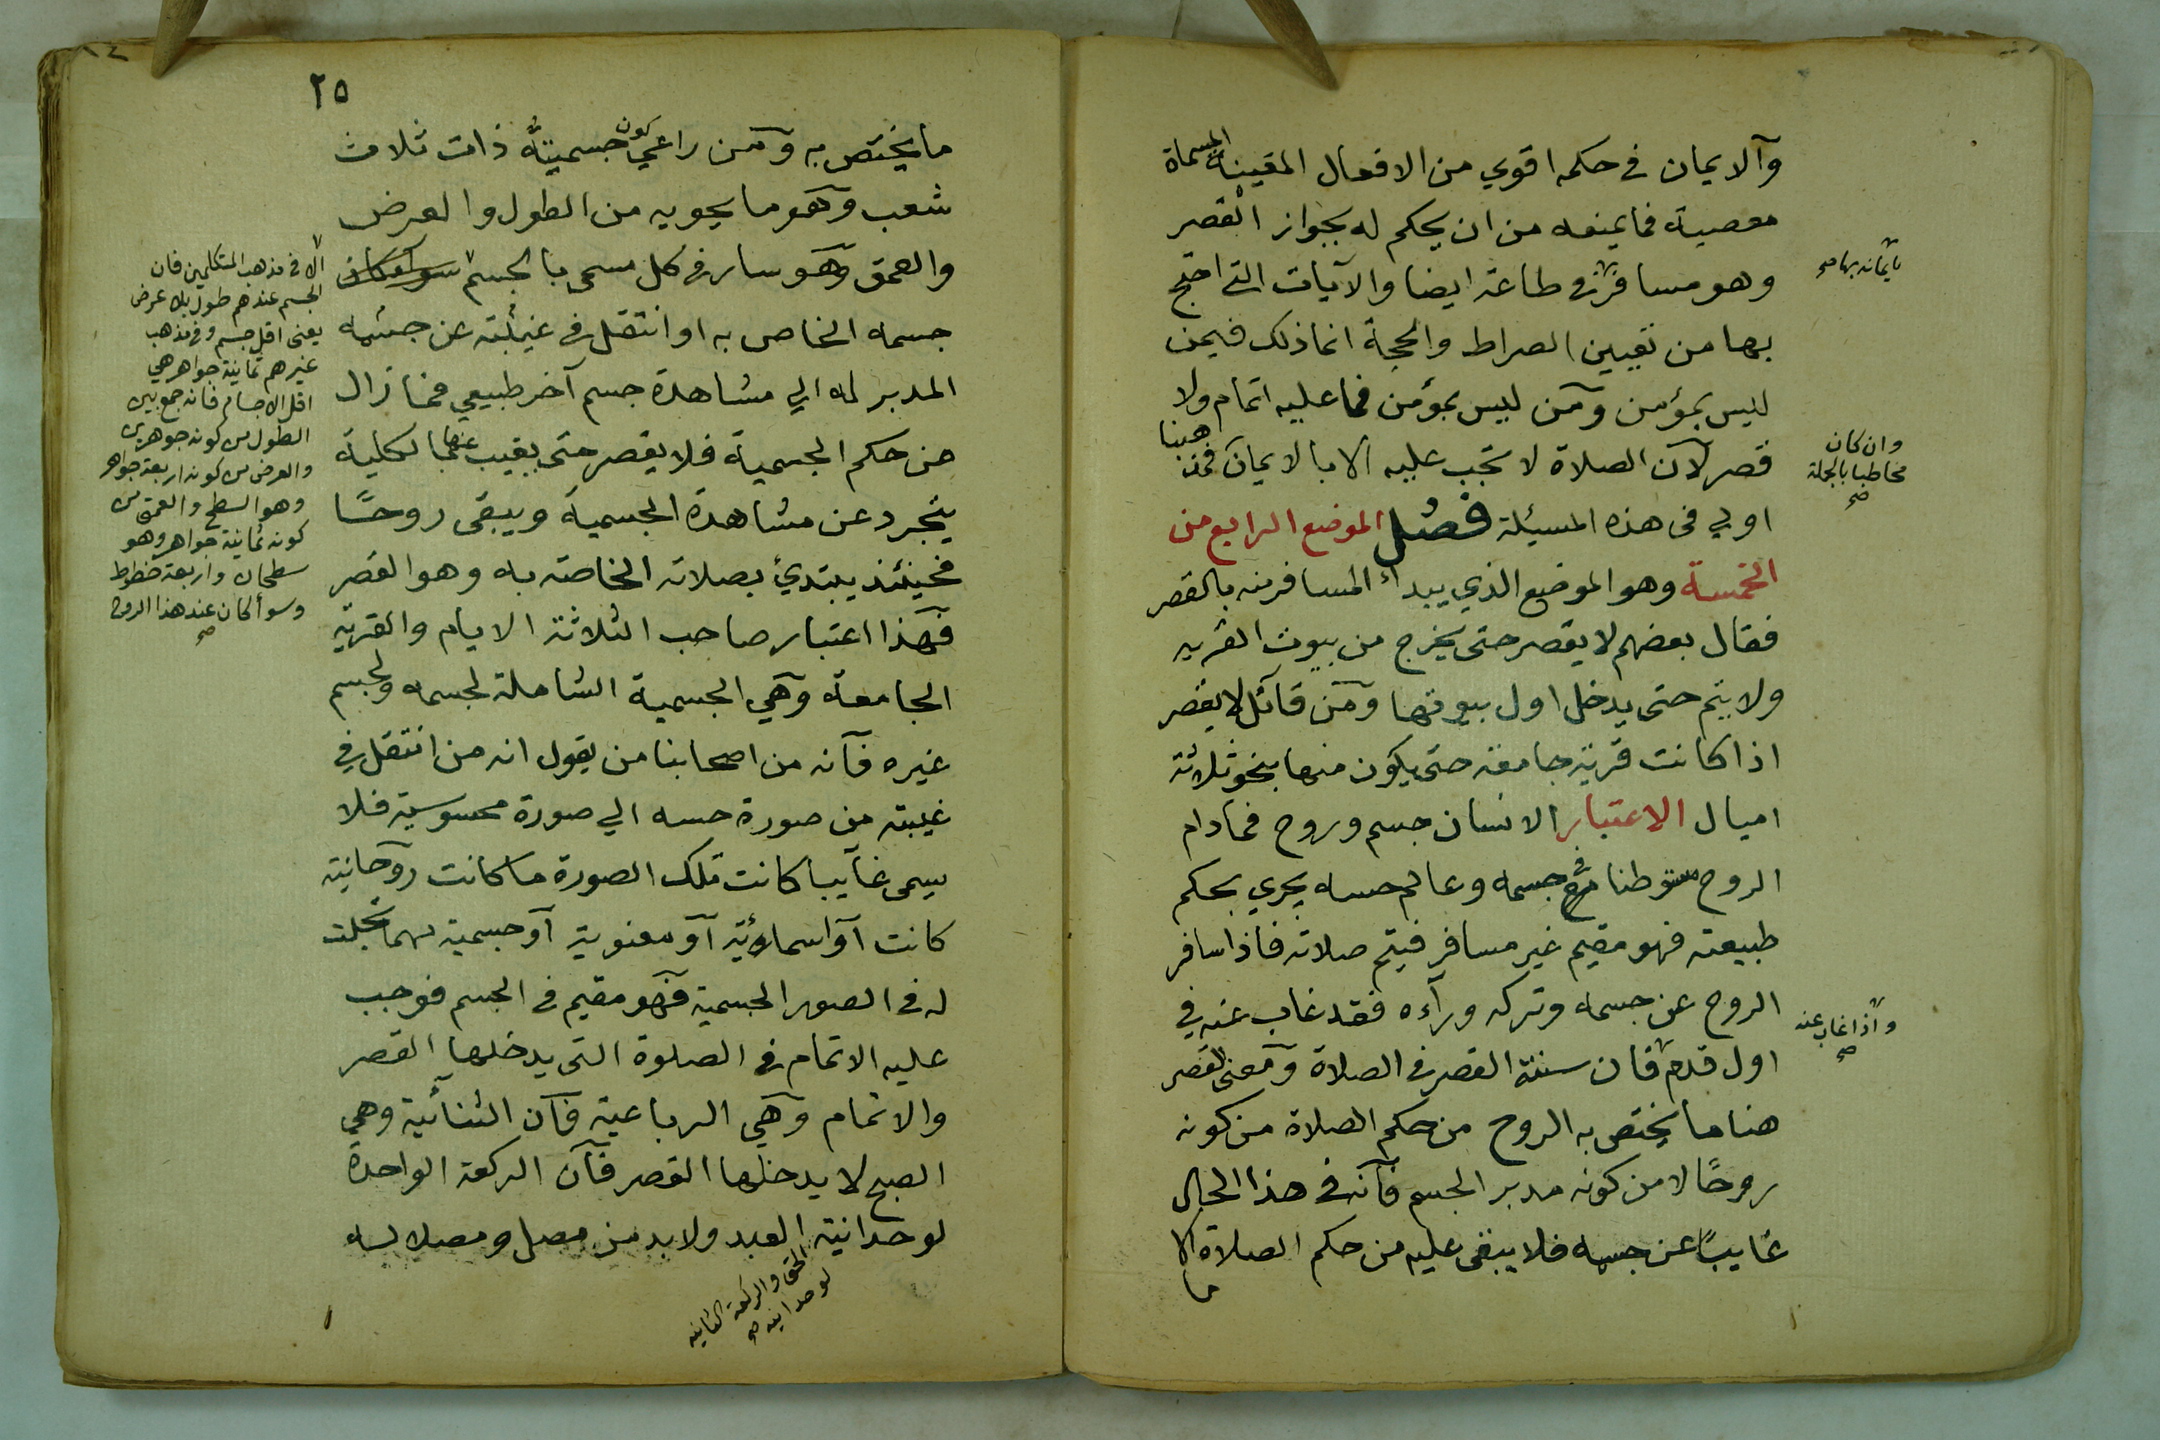 والايمان في حكمه اقوي من الافعال المقينة المسماة
معصية فما يمنعه من ان يحكم له بجواز القصر
وهو مسافر في طاعة ايضا والآيات التي احتج
بايمانه بها صح
بها من تعيين الصراط والمحجة انما ذلك فيمن
ليس بمؤمن ومن ليس بمؤمن فما عليه اتمام ولا
قصر لان الصلاة لا تجب عليه الا بالايمان فمذهبنا
وان كان
مخاطبا بالجملة
صح
اولي في هذه المسيئلة فصل الموضع الرابع من
الخمسة وهو الموضع الذي يبدأ المسافر منه بالقصر
فقال بعضهم لا يقصر حتى يخرج من بيوت القريه
ولا يتم حتى يدخل اول بيوتها ومن قائل لا يقصر
اذا كانت قرية جامعة حتى يكون منها بنحو ثلاثة
اميال الاعتبار الانسان جسم وروح فما دام
الروح متوطنا في جسمه وعالم حسه يجري بحكم
طبيعته فهو مقيم غير مسافر فيتم صلاته فاذا سافر
الروح عن جسمه وتركه ورآءه فقد غاب عنه في
اول قدم فان سنته القصر في الصلاة ومعنى القصر
واذا غاب عنه
صح
هنا ما يختص به الروح من حكم الصلاة من كونه
روحًا لا من كونه مدبر الجسم فانه في هذا الحال
غايبًا عن جسمه فلا يبقى عليه من حكم الصلاة الا
ما
٢٥
ما يختص به ومن راعي كون جسميته ذات ثلاث
شعب وهو ما يحويه من الطول والعرض
والعمق وهو سار في كل مسمى بالجسم سوآ كان
جسمه الخاص به او انتقل في غيبته عن جسمه
المدبر له الي مشاهدة جسم آخر طبيعي فما زال
من حكم الجسمية فلا يقصر حتى يغيب عنها بالكلية
يتجرد عن مشاهدة الجسمية ويبقى روحًا
فحينئذ يبتدئ بصلاته الخاصة به وهو القصر
فهذا اعتبار صاحب الثلاثة الايام والقرية
الجامعة وهي الجسمية الشاملة لجسمه ولجسم
غيره فانه من اصحابنا من يقول انه من انتقل في
غيبته من صورة حسه الي صورة محسوسية فلا
يسمى غايبا كانت تلك الصورة ما كانت روحانية
كانت او اسمائية او معنوية او جسمية مهما تجلت
له في الصور الجسمية فهو مقيم في الجسم فوجب
عليه الاتمام في الصلوة التي يدخلها القصر
والاتمام وهي الرباعية فان الثنائية وهي
الصبح لا يدخلها القصر فان الركعة الواحدة
لوحدانية العبد ولا بد من مصل ومصلا له
الحق والركعة الثانية
لوحدانيه صح
الا في مذهب المتكلمين فان
الجسم عندهم طول بلا عرض
يعني اقل جسم وفي مذهب
غيرهم ثمانية جواهر هي
اقل الاجسام فانه جمع بين
الطول من كونه جوهرين
والعرض من كونه اربعة جواهر
وهو السطح والعمق من
كونه ثمانية جواهر وهو
سطحان واربعة خطوط
وسوأ كان عند هذا الروح
صح